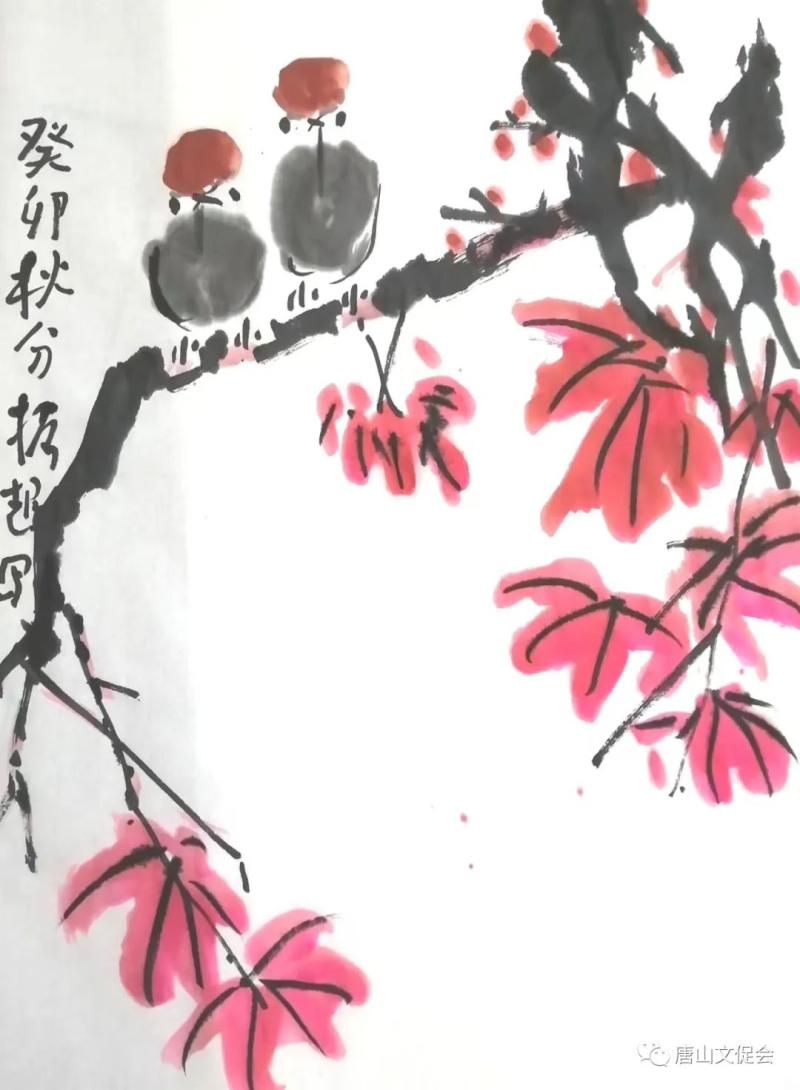 癸卯秋分振起写
唐山文促会